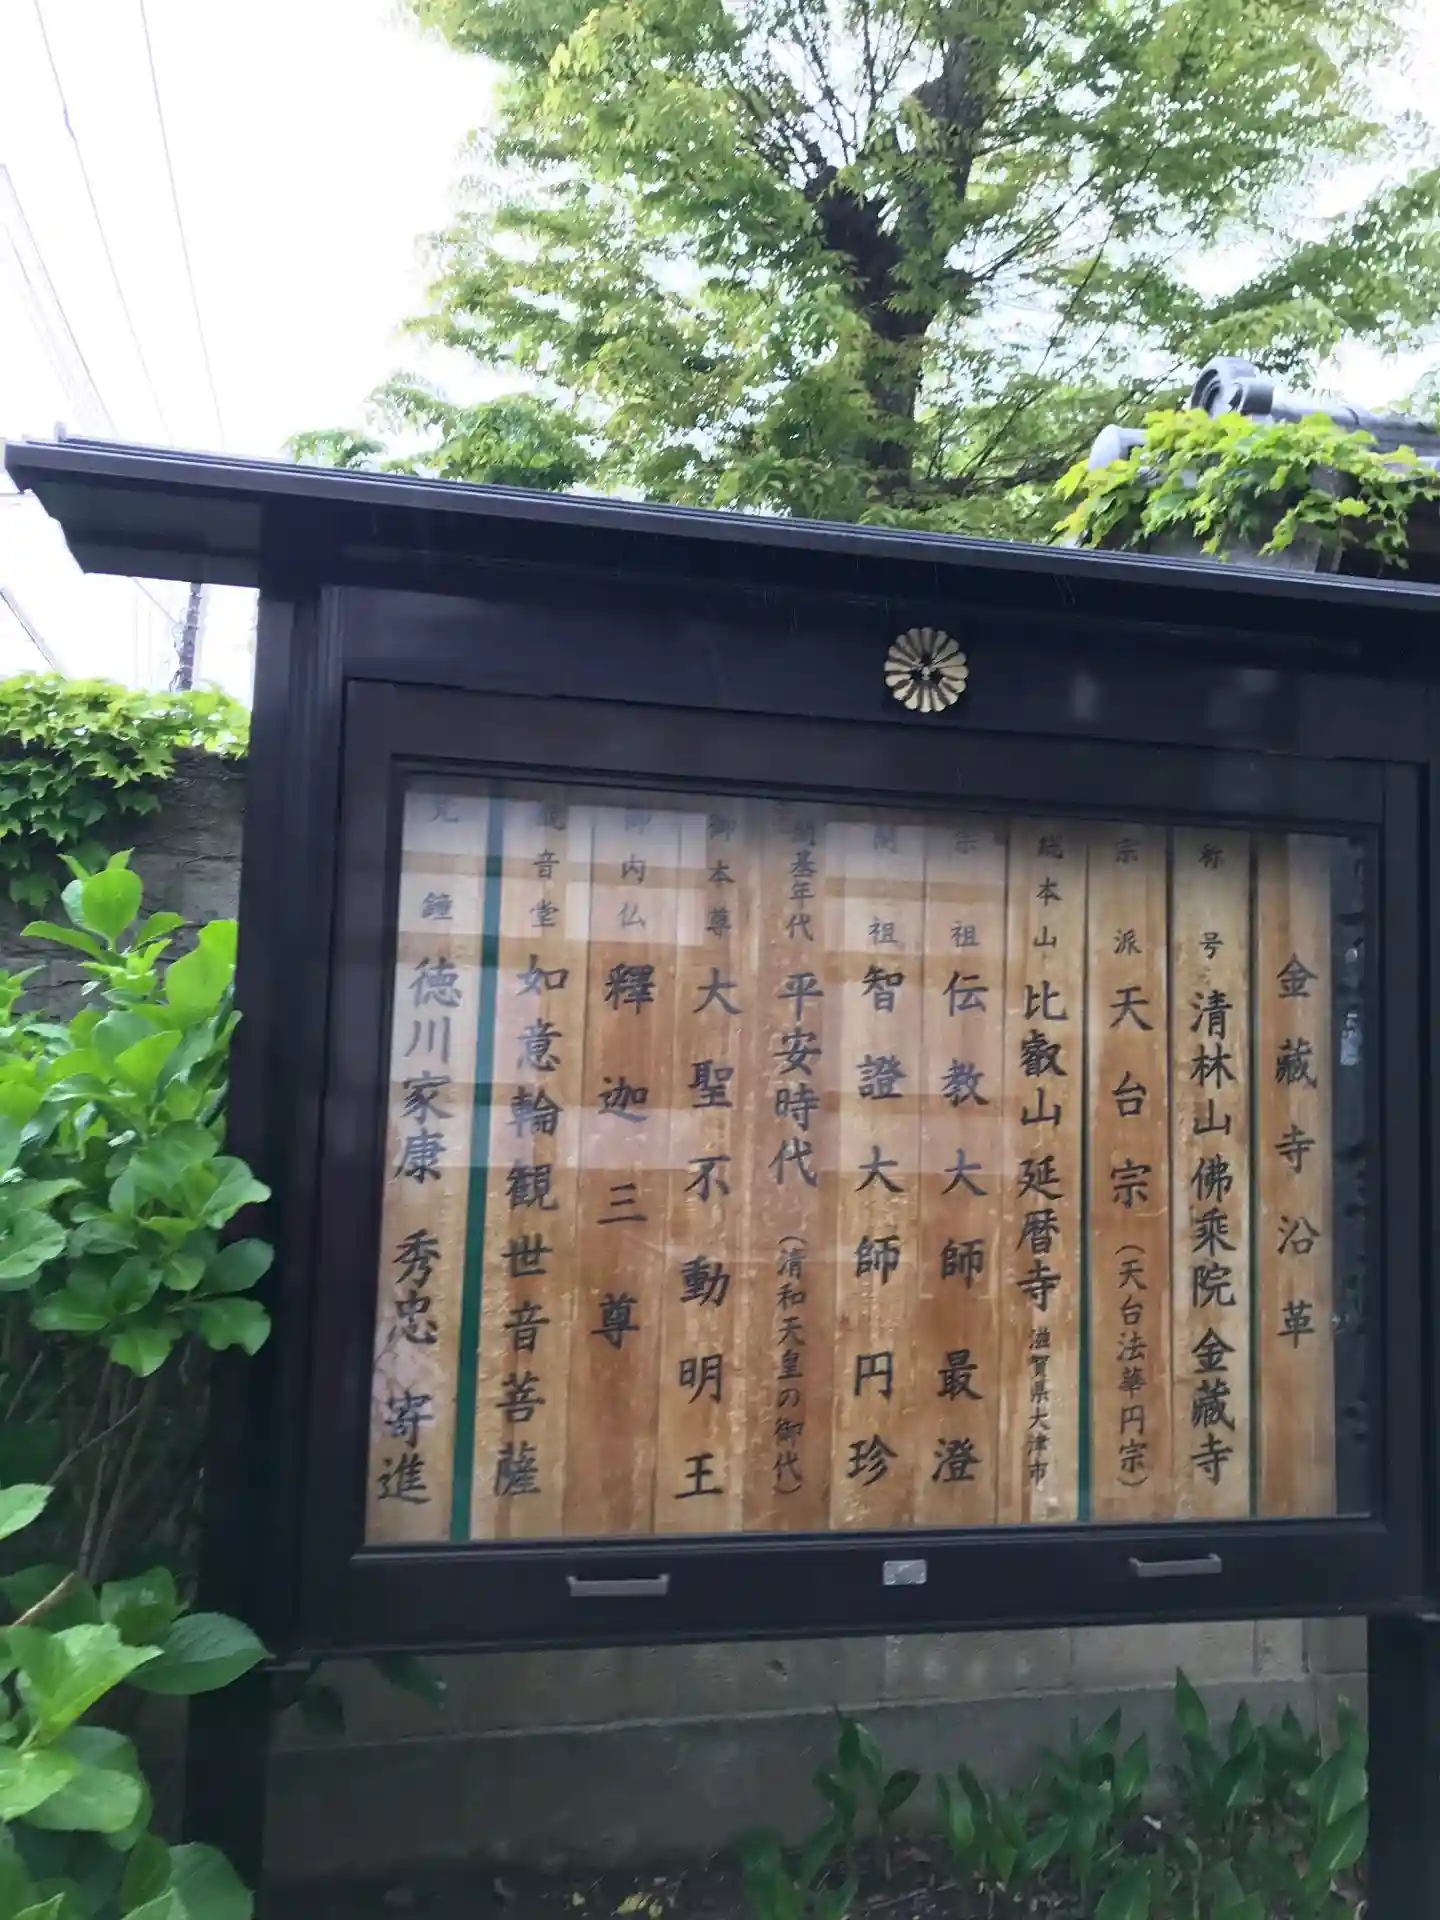 金藏寺沿革
称号 清林山佛乘院金藏寺
宗派 天台宗（天台法華円宗）
総本山 比叡山延暦寺 滋賀県大津市
宗祖 伝教大師最澄
開祖 智證大師円珍
開基年代 平安時代（清和天皇の御代）
御本尊 大聖不動明王
御内仏 釋迦三尊
観音堂 如意輪観世音菩薩
梵鐘 徳川家康 秀忠 寄進